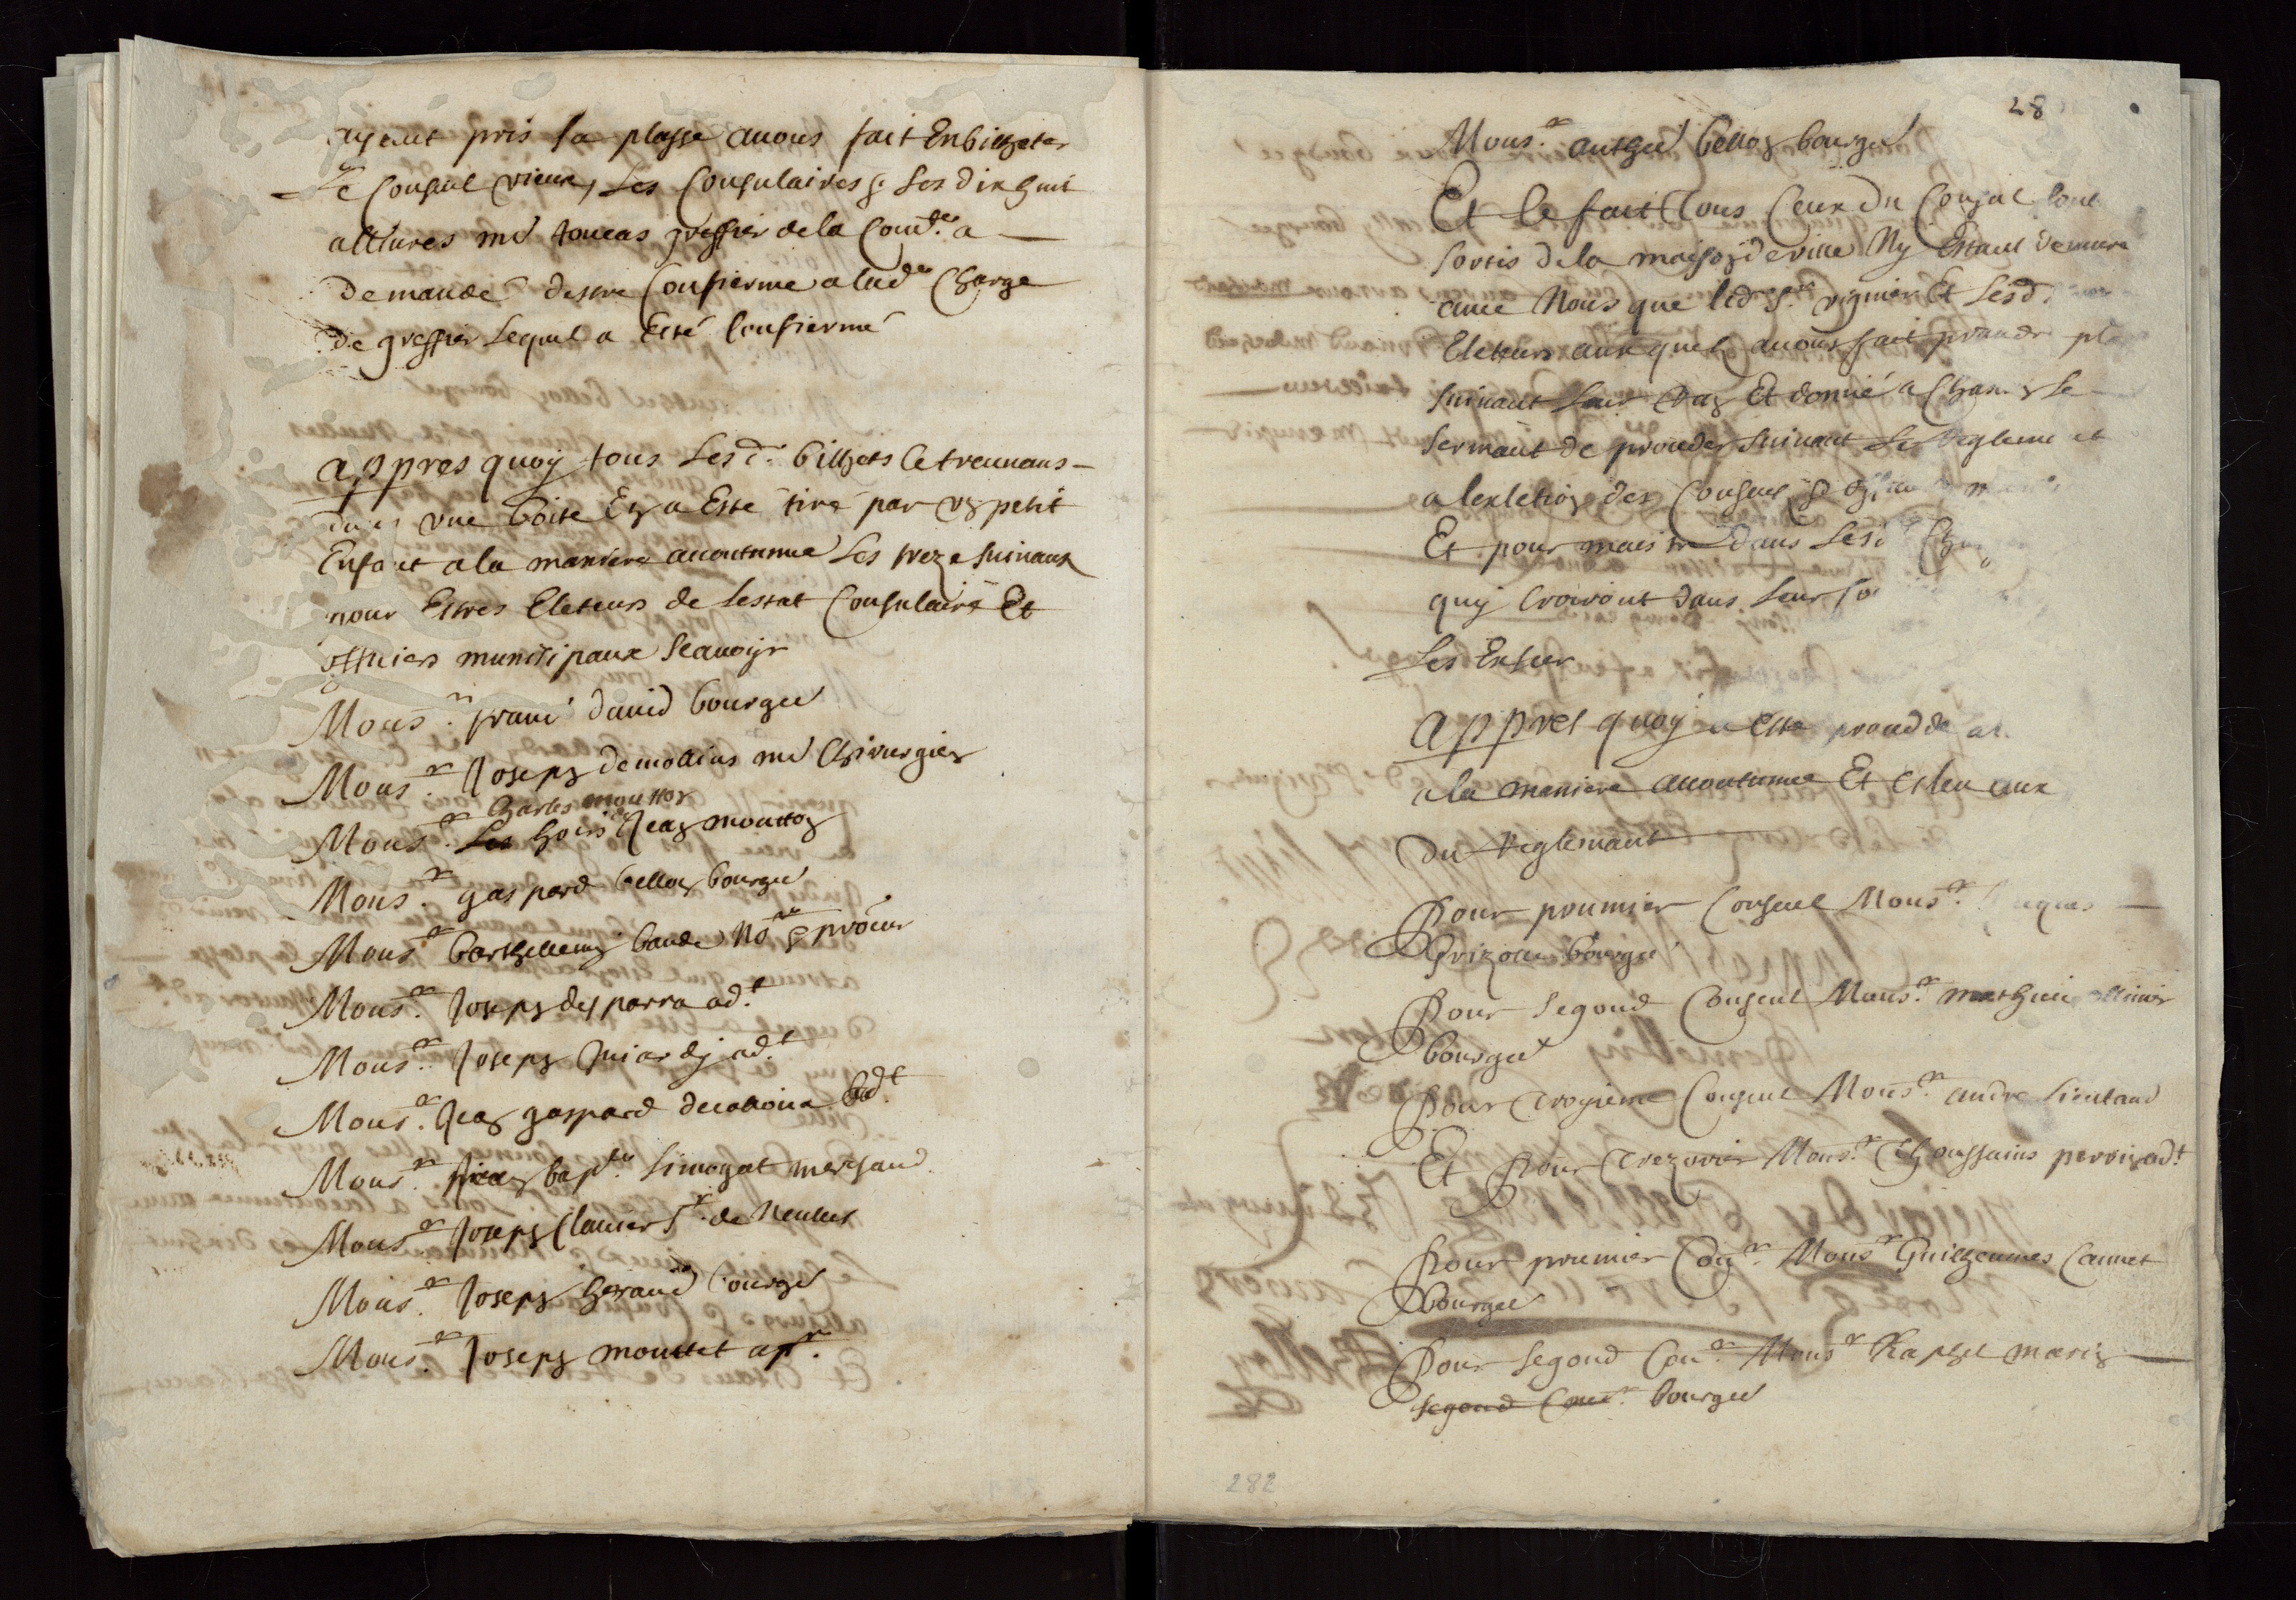 ayant pris sa plasse auons fait Enbilheter
Le Consul vieux, Les Consulaires & Les dix huit
attiures me toucas greffier de la Comd.te a
demandé destre Confierme a lad.te Charge
de greffier Lequel a Esté Confiermé
appres quoy tous Lesd. bilhets Cetreuuans
dans vne boite En a Este tiré par vn petit
Enfant a la maniere acoutumee Les treze suiuans
pour Estres Eleteurs de Lestat Consulaire Et
offiiers munisipaux Scauoyr
Mons.r frans dauid bourgeé
Mons.r Joseph demollins me Chirurgien
Charles moutton
Mons.r Les hoirs Jean moutton
Mons.r gaspard bellon bourgeé
Mons.r barthellemy baude No.re & procur
Mons.r Joseph desparra ad.t
Mons.r Joseph Guiardy ad.t
Mons.r Jean gaspard decabous ad.t
Mons.r Jean bap.te Limogat merchand
Mons.r Joseph Clauier S.r de Neulles
Mons.r Joseph heraud bourgé
Mons.r Joseph mouttet ap.r
28
Mons.r anthoé bellon bourgeé
Et le fait Tous Ceux du Consul sont
sortis de la maison de ville Ny Estant demure
auec Nous que led S.r viguier Et Lesd.
Eleteurs aux quels auons fait prandre pla
suiuant leur Rang Et donné a Chacun Le
sermant de proceder suiuant Le Reglement
a lexletion des Consuls &
Et pour maistre dans Lesd
quy Croiront dans Leur
Les Exsser
appres quoy a Este procedde
a la maniere acoutumee Et esleu aux
du Reglemant
Pour proumier Consul Mons.r
Grizolle bourgeé
Pour Segond Consul Mons.r mathieu olliuier
bourgeé
Pour Troysieme Consul Mons.r andre Lieutaud
Et Pour Trezorier Mons.r Thoussains perrin ad.t
Pour proumier Con.er Mons.r Guilheaumes Cannet
bourgeé
Pour Segond Con.er Mons.r Raphel marin
segond Con.er bourgeé
282